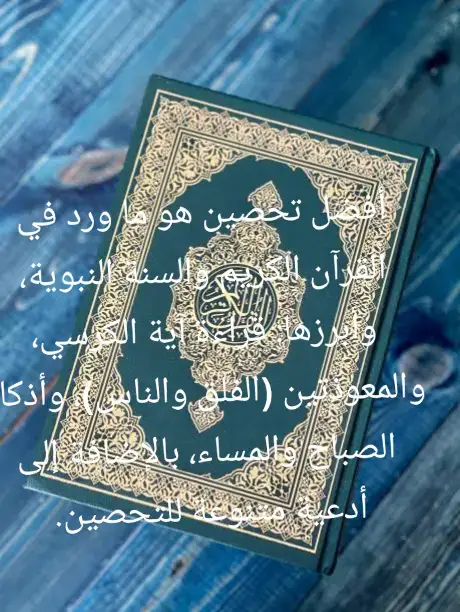 أفضل تحصين هو ما ورد في
القرآن الكريم والسنة النبوية،
وأبرزها: قراءة آية الكرسي،
والمعوذتين (الفلق والناس)، وأذكا
الصباح والمساء، بالإضافة إلى
أدعية متنوعة للتحصين.